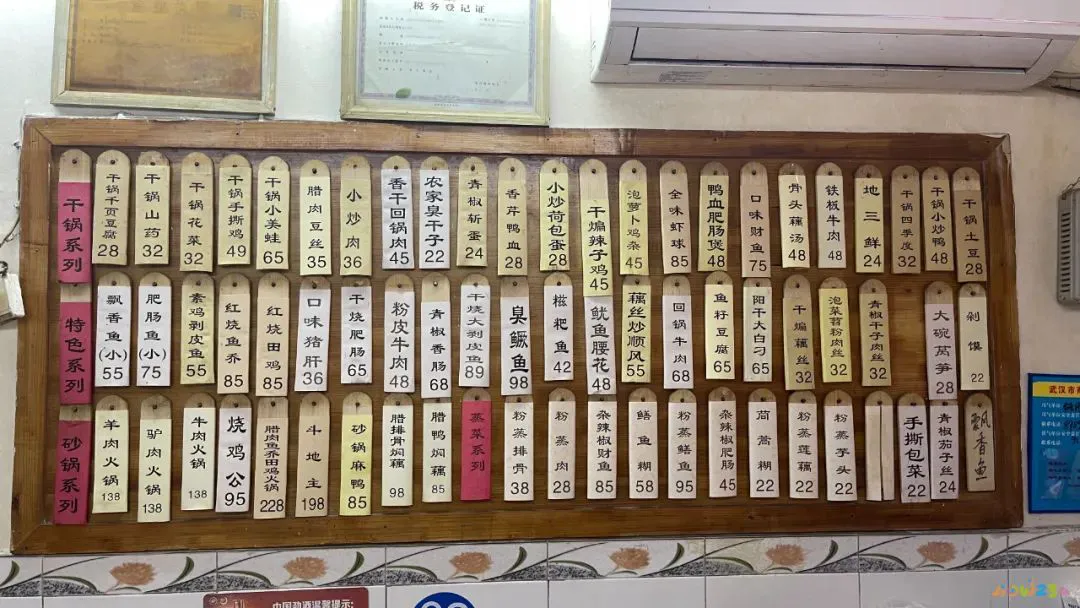 税务登记证
干锅系列
干锅千页豆腐 28
干锅山药 32
干锅花菜 32
干锅手撕鸡 49
干锅小美蛙 65
腊肉豆丝 35
小炒肉 36
香干回锅肉 45
农家臭干子 22
青椒斩蛋 24
香芹鸭血 28
小炒荷包蛋 28
干煸辣子鸡 45
泡萝卜鸡杂 45
全味虾球 85
鸭血肥肠煲 48
口味财鱼 75
骨头藕汤 48
铁板牛肉 48
地三鲜 24
干锅四季度 32
干锅小炒鸭 48
干锅土豆 28
特色系列
飘香鱼(小) 55
肥肠鱼(小) 75
素鸡剥皮鱼 55
红烧鱼乔 85
红烧田鸡 85
口味猪肝 36
干烧肥肠 65
粉皮牛肉 48
青椒香肠 68
干烧大剥皮鱼 89
臭鳜鱼 98
糍粑鱼 42
鱿鱼腰花 48
藕丝炒顺风 55
回锅牛肉 68
鱼籽豆腐 65
阳干大白刁 65
干煸藕丝 32
泡菜苕粉肉丝 32
青椒干子肉丝 32
大碗莴笋 28
剁馍 22
砂锅系列
羊肉火锅 138
驴肉火锅 138
牛肉火锅 138
烧鸡公 95
腊肉鱼乔田鸡火锅 228
斗地主 198
砂锅麻鸭 85
腊排骨焖藕 98
腊鸭焖藕 85
蒸菜系列
粉蒸排骨 38
粉蒸肉 28
杂辣椒财鱼 85
鳝鱼糊 58
粉蒸鳝鱼 95
杂辣椒肥肠 45
茼蒿糊 22
粉蒸莲藕 22
粉蒸芋头 22
手撕包菜 22
青椒茄子丝 24
飘香鱼
武汉市
中国劲酒温馨提示: